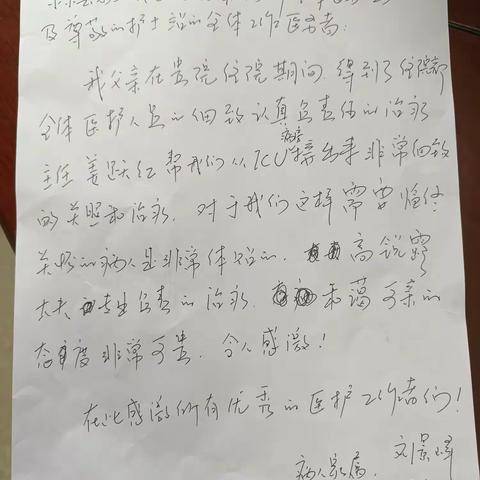 及尊敬的护士站的全体工作医务者:
我父亲在贵院住院期间,得到了住院部
全体医护人员的细致认真负责任的治疗
主任姜跃红帮我们从ICU病房接出来非常细致
的关照和治疗。对于我们这样需要临终
关照的病人是非常体贴的。高锐霞
大夫专业负责的治疗。和蔼可亲的
态度非常可贵,令人感激!
在此感激所有优秀的医护工作者们!
病人家属. 刘景峰